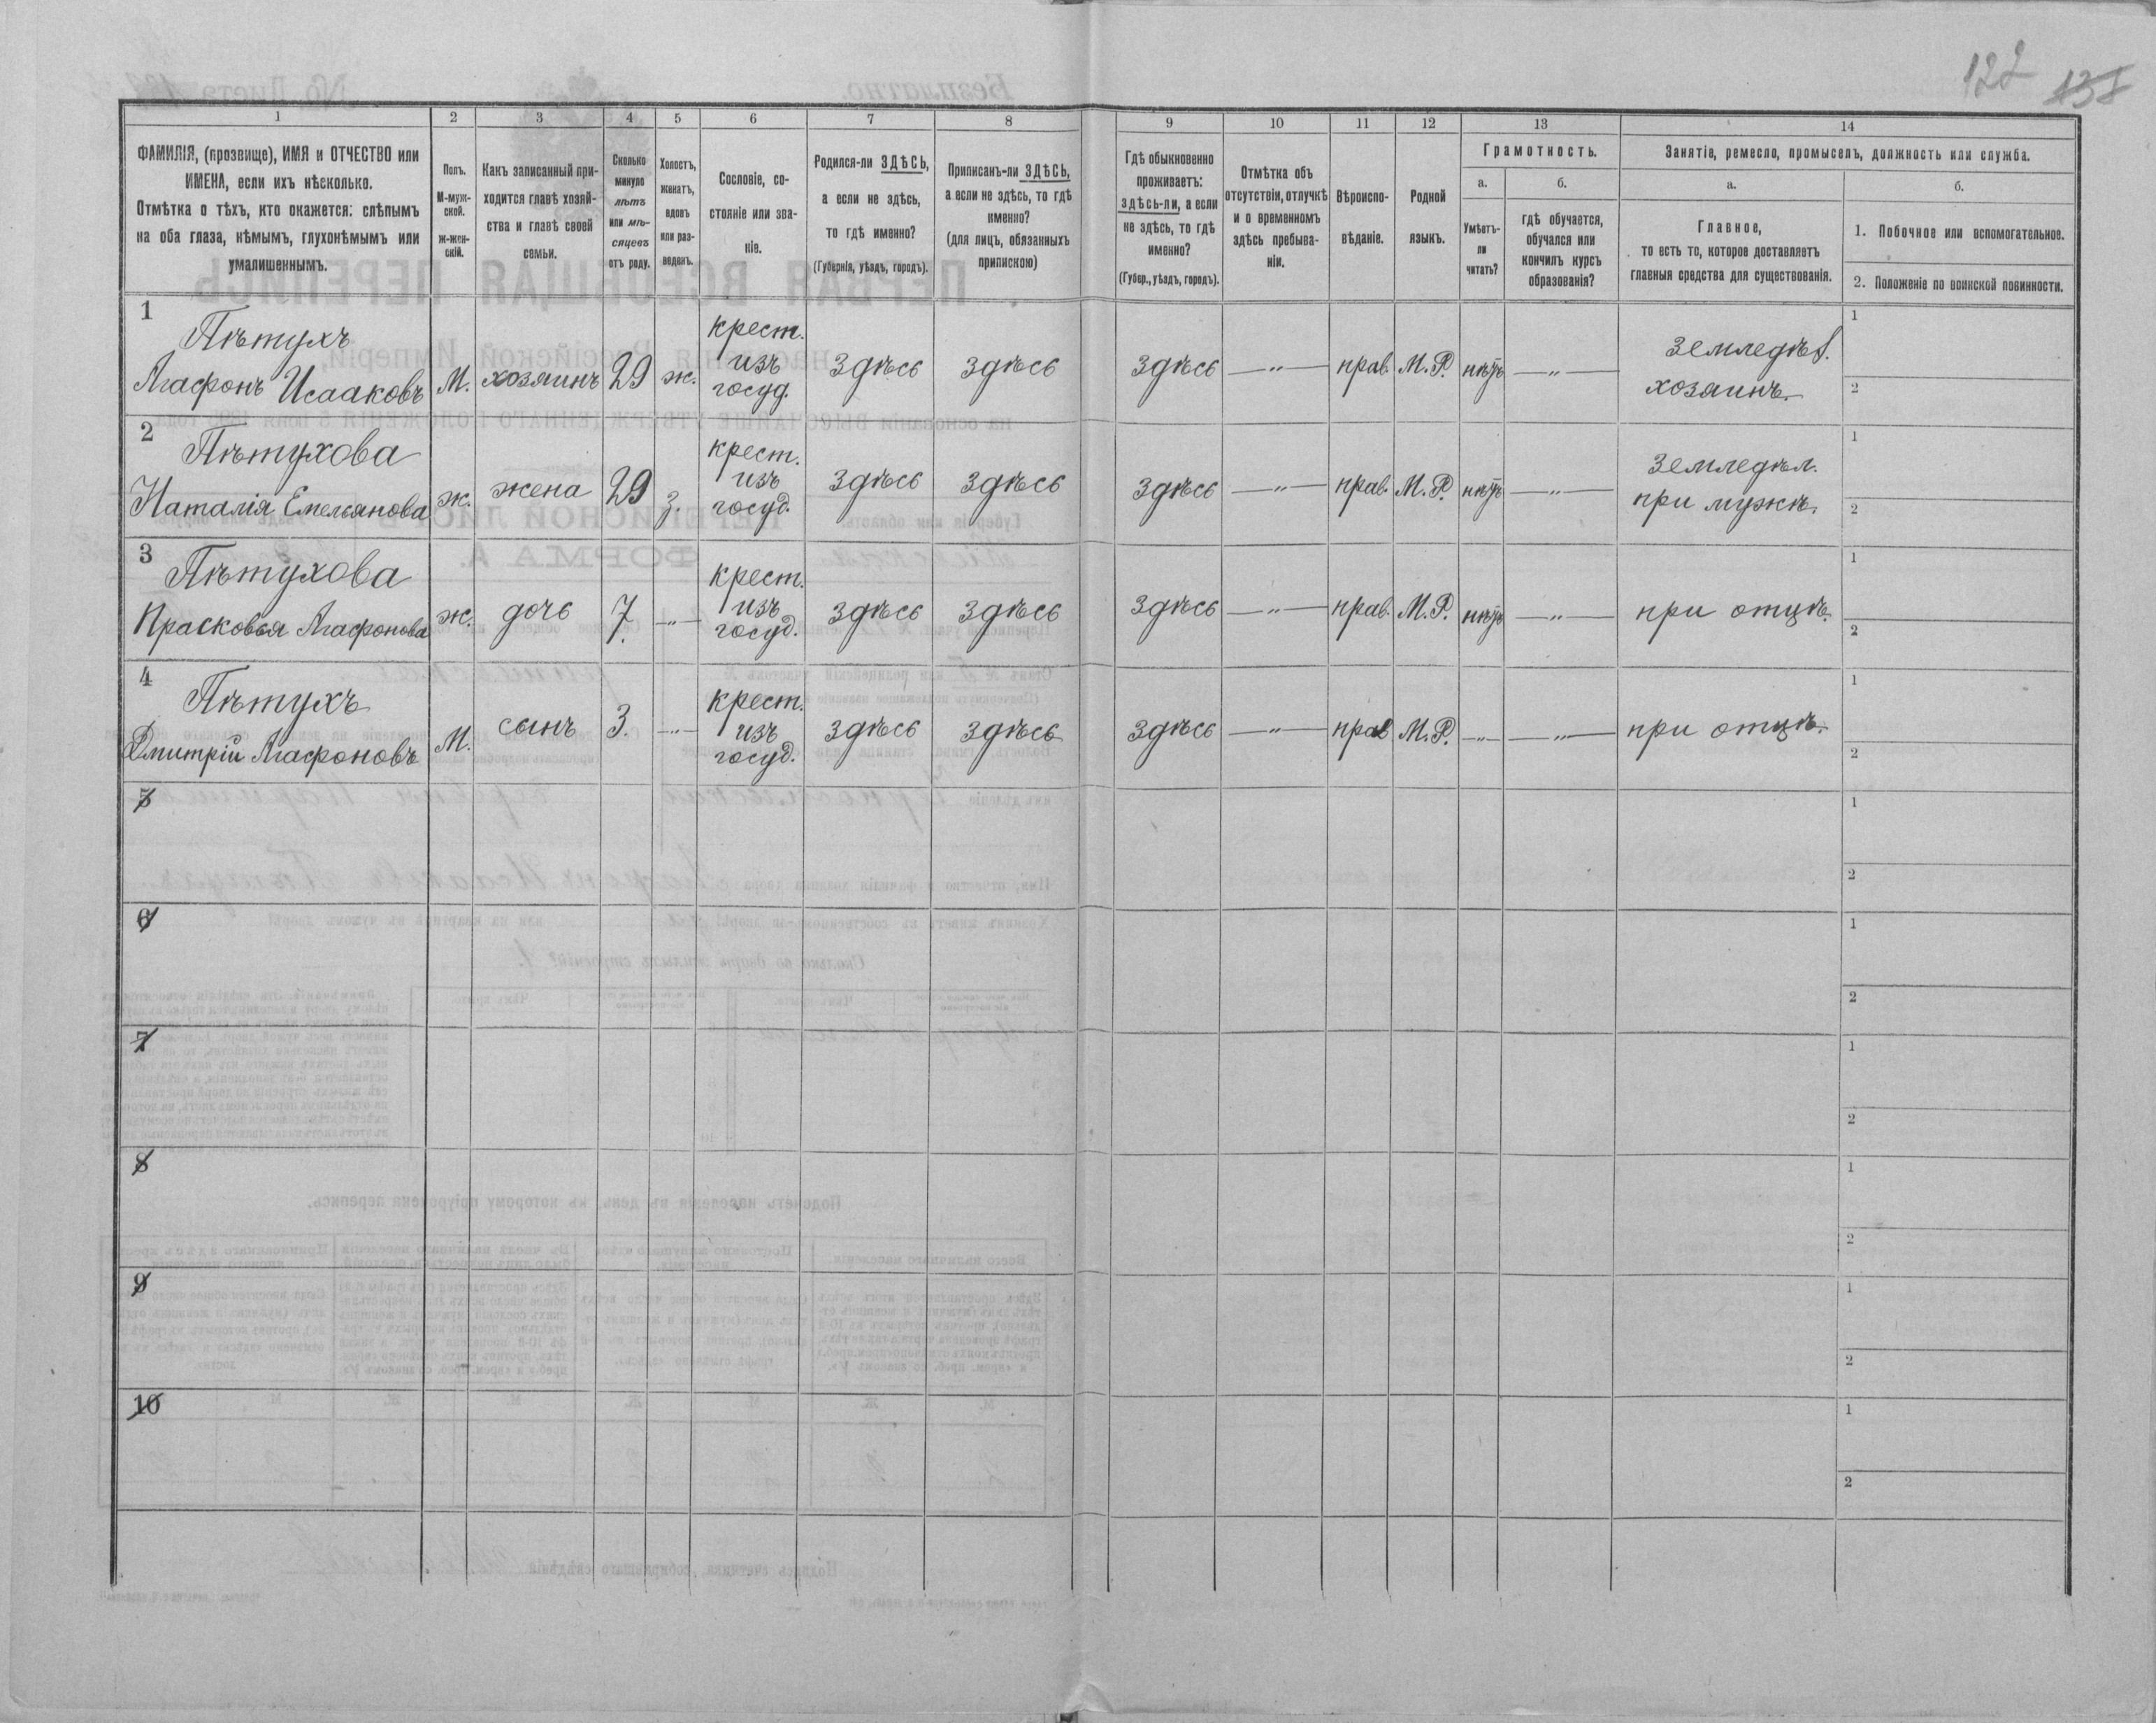 122 137
1 2 3 4 5 6 7 8 9 10 11 12 13 14
ФАМИЛІЯ, (прозвище), ИМЯ и ОТЧЕСТВО или
ИМЕНА, если ихъ нѣсколько.
Отмѣтка о тѣхъ, кто окажется: слѣпымъ
на оба глаза, нѣмымъ, глухонѣмымъ или
умалишеннымъ.
Полъ.
М-муж-
ской.
ж-жен-
скій.
Какъ записанный при-
ходится главѣ хозяй-
ства и главѣ своей
семьи.
Сколько
минуло
лѣтъ
или мѣ-
сяцевъ
отъ роду.
Холостъ,
женатъ,
вдовъ
или раз-
веденъ.
Сословіе, со-
стояніе или зва-
ніе.
Родился-ли ЗДѢСЬ,
а если не здѣсь,
то гдѣ именно?
(Губернія, уѣздъ, городъ).
Приписанъ-ли ЗДѢСЬ,
а если не здѣсь, то гдѣ
именно?
(для лицъ, обязанныхъ
припискою)
Гдѣ обыкновенно
проживаетъ:
здѣсь-ли, а если
не здѣсь, то гдѣ
именно?
(Губер., уѣздъ, городъ).
Отмѣтка объ
отсутствіи, отлучкѣ
и о временномъ
здѣсь пребыва-
ніи.
Вѣроиспо-
вѣданіе.
Родной
языкъ.
Грамотность.
а.
Умѣетъ-
ли
читать?
б.
гдѣ обучается,
обучался или
кончилъ курсъ
образованія?
Занятіе, ремесло, промыселъ, должность или служба.
а.
Главное,
то есть то, которое доставляетъ
главныя средства для существованія.
б.
1. Побочное или вспомогательное.
2. Положеніе по воинской повинности.
1
Пѣтухъ
Агафонъ Исааковъ
М.
хозяинъ
29
ж.
крест.
изъ
госуд.
здѣсь
здѣсь
здѣсь
—"—
прав.
М.Р.
нѣтъ
—"—
земледѣл.
хозяинъ.
1
2
2
Пѣтухова
Наталія Емельянова
ж.
жена
29
з.
крест.
изъ
госуд.
здѣсь
здѣсь
здѣсь
—"—
прав.
М.Р.
нѣтъ
—"—
земледѣл.
при мужѣ.
1
2
3
Пѣтухова
Прасковья Агафонова
ж.
дочь
7.
—"—
крест.
изъ
госуд.
здѣсь
здѣсь
здѣсь
—"—
прав.
М.Р.
нѣтъ
—"—
при отцѣ.
1
2
4
Пѣтухъ
Дмитрій Агафоновъ
М.
сынъ
3.
—"—
крест.
изъ
госуд.
здѣсь
здѣсь
здѣсь
—"—
прав
М.Р.
—"—
—"—
при отцѣ.
1
2
5
1
2
6
1
2
7
1
2
8
1
2
9
1
2
10
1
2